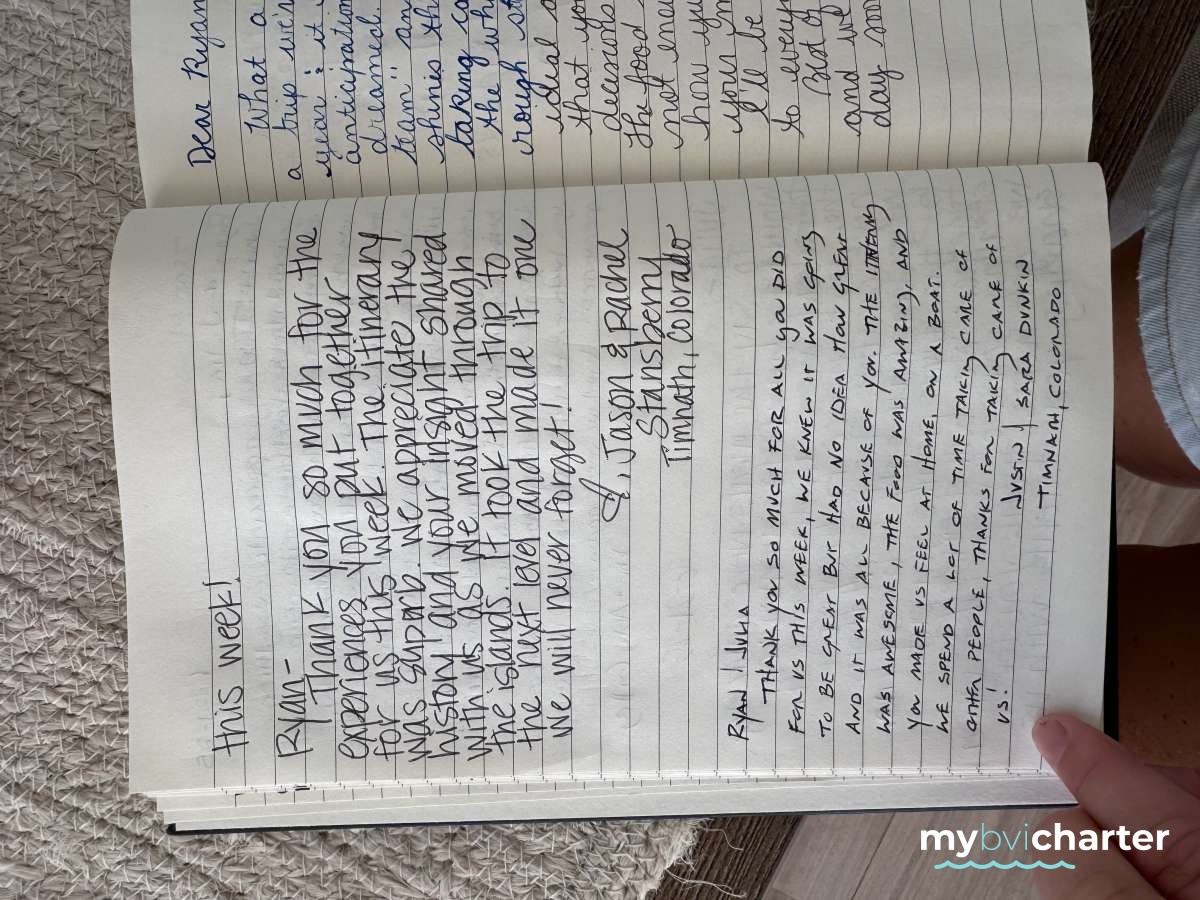 this week!
Ryan-
Thank you so much for the
experiences you put together
for us this week. The itinerary
was suparb. We appreciate the
history and your insight shared
with us as we moved through
the islands. It took the trip to
the next level and made it one
we will never forget!
Jason & Rachel
Stansberry
Timnath, Colorado
RYAN / JULIA
THANK YOU SO MUCH FOR ALL YOU DID
FOR US THIS WEEK, WE KNEW IT WAS GOING
TO BE GREAT BUT HAD NO IDEA HOW GREAT
AND IT WAS ALL BECAUSE OF YOU. THE ITINERARY
WAS AWESOME, THE FOOD WAS AMAZING, AND
YOU MADE US FEEL AT HOME, ON A BOAT.
WE SPEND A LOT OF TIME TAKING CARE OF
OTHER PEOPLE, THANKS FOR TAKING CARE OF
US!
JUSTIN / SARA DUNKIN
TIMNATH, COLORADO
Dear Ryan
What a
trip we're
a year: it
anticipation
dreamed
team" an
shins th
taking ca
the wh
rough st
ideal
that you
decisions
the food
not en
how you
your
I'll be
to every
Best of
and we
day
mybvicharter